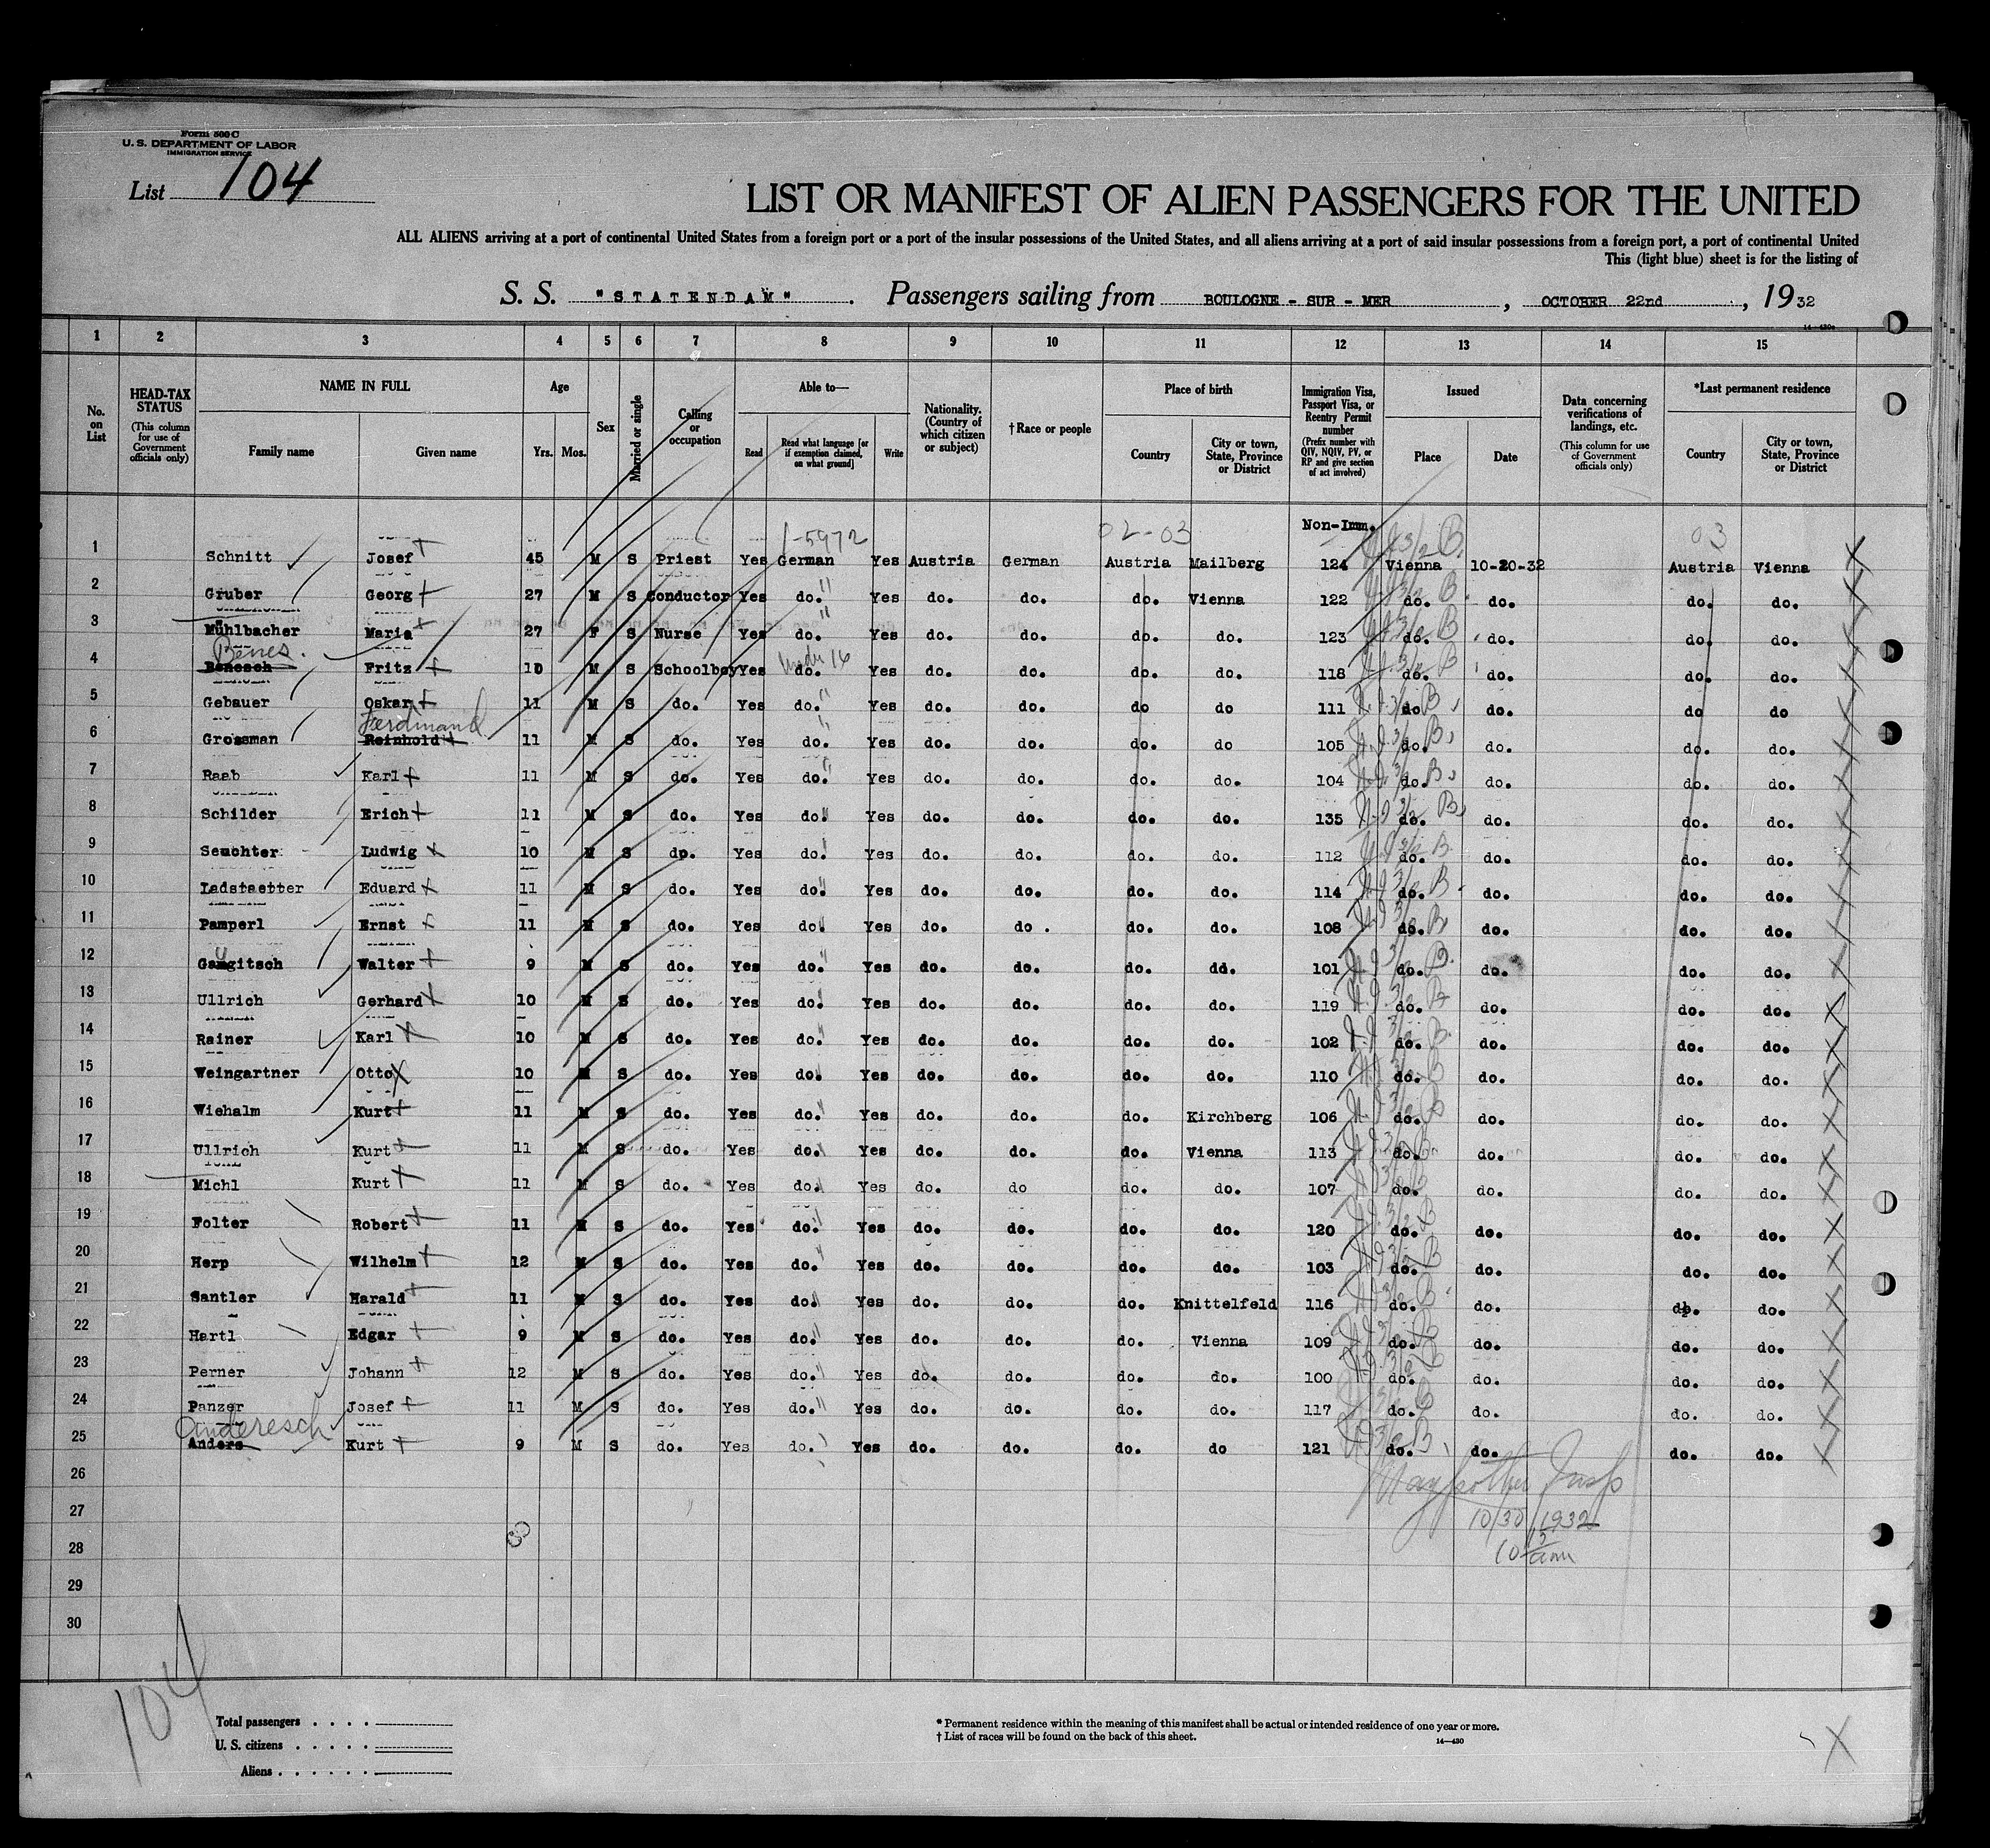 Form 500 C
U. S. DEPARTMENT OF LABOR
IMMIGRATION SERVICE
List 104
LIST OR MANIFEST OF ALIEN PASSENGERS FOR THE UNITED
ALL ALIENS arriving at a port of continental United States from a foreign port or a port of the insular possessions of the United States, and all aliens arriving at a port of said insular possessions from a foreign port, a port of continental United
This (light blue) sheet is for the listing of
S. S. "STATENDAM". Passengers sailing from BOULOGNE - SUR - MER, OCTOBER 22nd, 1932
1 2 3 4 5 6 7 8 9 10 11 12 13 14 15
No. on List
HEAD-TAX STATUS (This column for use of Government officials only)
NAME IN FULL Family name Given name
Age Yrs. Mos.
Sex
Married or single
Calling or occupation
Able to— Read Read what language [or if exemption claimed, on what ground] Write
Nationality. (Country of which citizen or subject)
†Race or people
Place of birth Country City or town, State, Province or District
Immigration Visa, Passport Visa, or Reentry Permit number (Prefix number with QIV, NQIV, PV, or RP and give section of act involved)
Issued Place Date
Data concerning verifications of landings, etc. (This column for use of Government officials only)
*Last permanent residence Country City or town, State, Province or District
1-5972 02-03 Non-Imm. 03
1 Schnitt Josef 45 M S Priest Yes German Yes Austria German Austria Mailberg 124 Vienna 10-20-32 Austria Vienna
2 Gruber Georg 27 M S Conductor Yes do. Yes do. do. do. Vienna 122 do. do. do. do.
3 Mühlbacher Maria 27 F S Nurse Yes do. Yes do. do. do. do. 123 do. do. do. do.
Benes.
4 Benesch Fritz 10 M S Schoolboy Yes do. under 16 Yes do. do. do. do. 118 do. do. do. do.
5 Gebauer Oskar 11 M S do. Yes do. Yes do. do. do do 111 do do. do do
Ferdinand
6 Grossman Reinhold 11 M S do. Yes do. Yes do. do. do. do 105 do. do. do. do.
7 Raab Karl 11 M S do. Yes do. Yes do. do. do. do. 104 do. do. do. do.
8 Schilder Erich 11 M S do. Yes do. Yes do. do. do. do. 135 do. do. do. do.
9 Seuchter Ludwig 10 M S do. Yes do. Yes do. do. do. do. 112 do. do. do. do.
10 Ladstaetter Eduard 11 M S do. Yes do. Yes do. do. do. do. 114 do. do. do. do.
11 Pamperl Ernst 11 M S do. Yes do. Yes do. do. do. do. 108 do. do. do. do.
12 Gaugitsch Walter 9 M S do. Yes do. Yes do. do. do. dd. 101 do. do. do. do.
13 Ullrich Gerhard 10 M S do. Yes do. Yes do. do. do. do. 119 do. do. do. do.
14 Rainer Karl 10 M S do. Yes do. Yes do. do. do. do. 102 do. do. do. do.
15 Weingartner Otto 10 M S do. Yes do. Yes do. do. do. do. 110 do. do. do. do.
16 Wiehalm Kurt 11 M S do. Yes do. Yes do. do. do. Kirchberg 106 do. do. do. do.
17 Ullrich Kurt 11 M S do. Yes do. Yes do. do. do. Vienna 113 do. do. do. do.
18 Michl Kurt 11 M S do. Yes do. Yes do. do do. do. 107 do. do. do. do.
19 Folter Robert 11 M S do. Yes do. Yes do. do. do. do. 120 do. do. do. do.
20 Herp Wilhelm 12 M S do. Yes do. Yes do. do. do. do. 103 do. do. do. do.
21 Santler Harald 11 M S do. Yes do. Yes do. do. do. Knittelfeld 116 do. do. do. do.
22 Hartl Edgar 9 M S do. Yes do. Yes do. do. do. Vienna 109 do. do. do. do.
23 Perner Johann 12 M S do. Yes do. Yes do. do. do. do. 100 do. do. do. do.
24 Panzer Josef 11 M S do. Yes do. Yes do. do. do. do. 117 do. do. do. do.
Anderesch
25 Anders Kurt 9 M S do. Yes do. Yes do. do. do. do 121 do. do. do. do.
26
27 10/30/1932
28
29
30
104
Total passengers
U. S. citizens
Aliens
* Permanent residence within the meaning of this manifest shall be actual or intended residence of one year or more.
† List of races will be found on the back of this sheet.
14—430